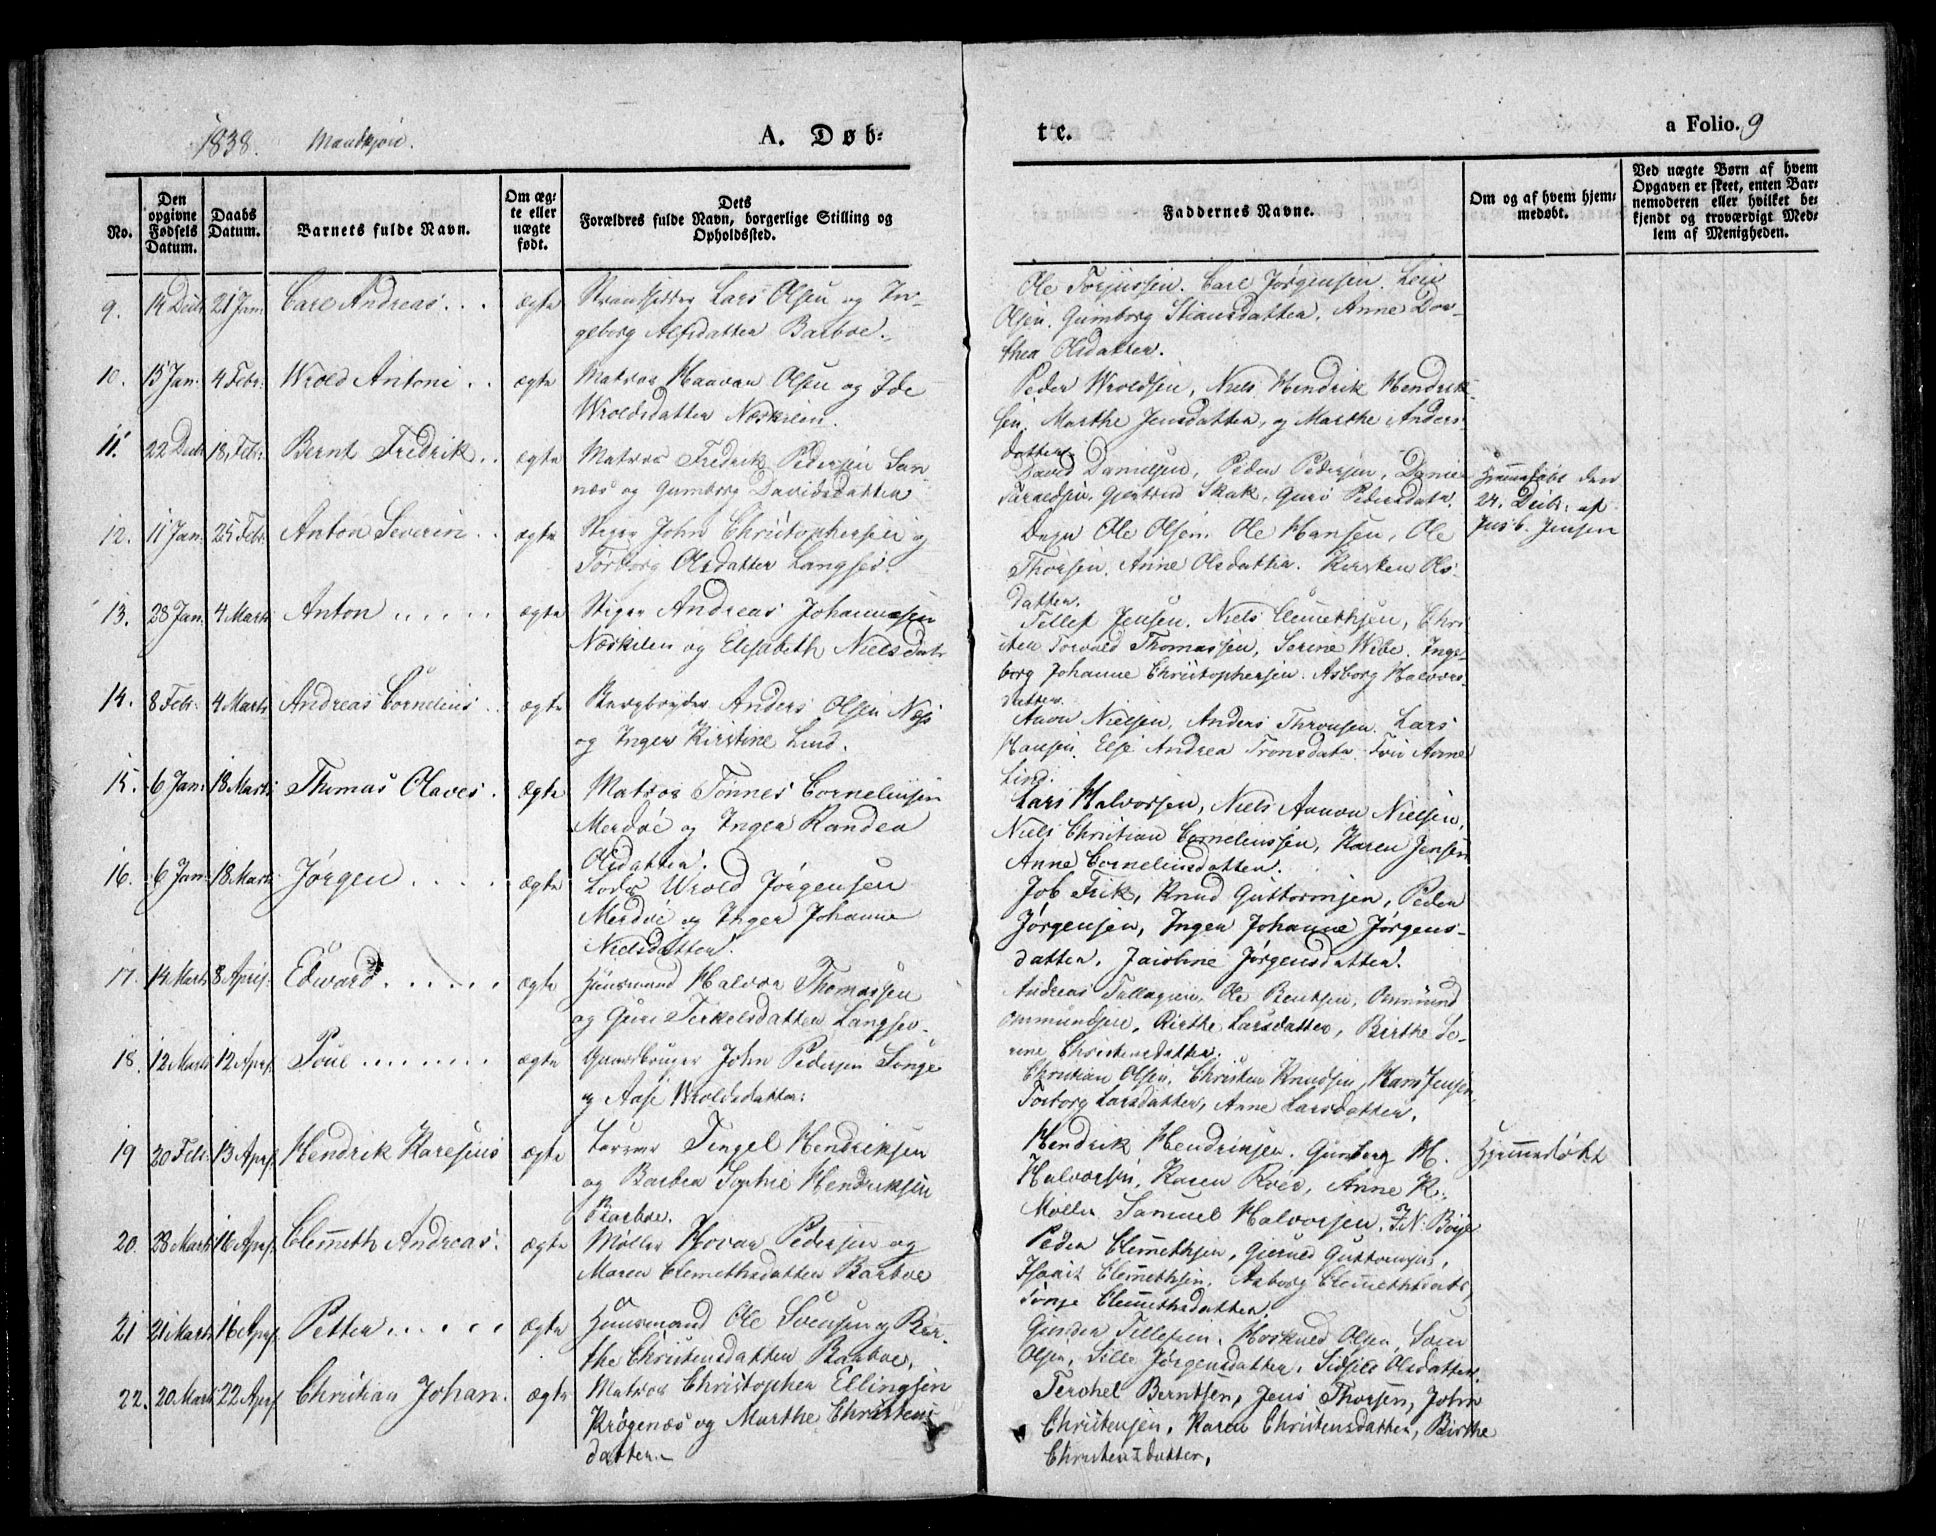 1838. Mandkjön.
A. Døb=
te.
a Folio. 9
No.
Den opgivne Fødsels Datum.
Daabs Datum.
Barnets fulde Navn.
Om ægte eller uægte født.
Dets Forældres fulde Navn, borgerlige Stilling og Opholdssted.
Faddernes Navne.
Om og af hvem hjemmedøbt.
Ved uægte Børn af hvem
Opgaven er skeet, enten Bar=
nemoderen eller hvilket be=
kjendt og troværdigt Med=
lem af Menigheden.
9. 14 Decbr 21 Jan: Carl Andreas... ægte Strandsidder Lars Olsen og In-
geborg Alfsdatter Barboe.
Ole Torjussen. Carl Jørgensen.
Olsen. Gumborg Stiansdatter. Anne Dor-
thea Olsdatter.
10. 15 Jan: 4 Febr: Wrold Antoni.. ægte Matros Haavor Olsen og Ide
Wroldsdatter Neskilen.
Peder Wroldsen, Niels Hendrik Hendrik-
sen, Marthe Jensdatter, og Marthe Anders-
datter.
11. 22 Decbr 18 Febr: Bernt Fredrik.. ægte Matros Fredrik Pedersen San-
næs og Gumborg Davidsdatter
David Danielsen, Peder Pedersen, Daniel
Gjertrud Skak, Guro Pedersdatr.
Hjemmedøbt den
24. Decbr. af
Jensen
12. 11 Jan: 25 Febr: Anton Severin.. ægte Steger John Christophersen og
Torborg Olsdatter Langsev.
Ole Olsen. Ole Hansen, Ole
Thorsen. Anne Olsdatter. Kirsten Ols-
datter.
13. 28 Jan. 4 Marts Anton...... ægte Steger Andreas Johannesen
Neskilen og Elisabeth Nielsdatr
Tellef Jensen. Niels Clemethsen, Chri
sten Torvald Thomassen, Serine Wide. Inge-
borg Johanne Christophersen. Asborg Halvors-
datter.
14. 8 Febr: 4 Marts Andreas Cornelius.. ægte Bergbryder Anders Olsen Næs
og Inger Kirstine Lind.
Aavon Nielsen, Anders Thronsen. Lars
Hansen, Else Andrea Tronsdatr Anne
Lind.
15. 6 Jan: 18 Marts Thomas Olaves. ægte Matros Tønnes Corneliusen
Merdøe og Inger Randea
Olsdatter.
Lars Halvorsen, Niels Aanon Nielsen,
Niels Christian Corneliussen, Karen Jensen
Anne Corneliusdatter.
16. 6 Jan: 18 Marts Jørgen.... ægte Lods Wrold Jørgensen
Merdøe og Inger Johanne
Nielsdatter.
Job Frik, Knud Guttormsen, Peder
Jørgensen, Inger Johanne Jørgens-
datter. Jacobine Jørgensdatter.
17. 14 Marts 8 April. Edward...... ægte Huusmand Halvor Thomassen
og Guri Terkelsdatter Langsev.
Andreas Tallagsen, Ole Bentsen, Ommund
Ommundsen, Birthe Larsdatter, Birthe Se-
rine Christensdatter.
18. 12 Marts 12 April. Poul........ ægte Gaardbruger John Pedersen Songe
og Aase Wroldsdatter.
Christian Olsen, Christen Knudsen, Hans Jensen,
Torborg Larsdatter, Anne Larsdatter.
19 20 Febr: 13 April. Hendrik Karesius ægte Tingel Hendriksen
og Barbra Sophie Hendriksen
Barboe.
Hendrik Hendriksen. Gunborg M.
Halvorsen, Karen Roed, Anne K.
Møller Samuel Halvorsen. J.N. Boÿe
Hjemmedøbt
20. 28 Marts 16 April. Clemeth Andreas. ægte Møller Hovar Pedersen og
Maren Clemethsdatter Barboe
Peder Clemethsen, Guttormsen,
Isaak Clemethsen. Asborg Clemethsdatr,
Tonje Clemethsdatter.
21 21 Marts 16 April. Petter...... ægte Huusmand Ole Svensen og Bir-
the Christensdatter Barboe.
Gunder Tellefsen. Olsen, Sven
Olsen, Sille Jørgensdatter. Sidsele Olsdatter.
22. 20 Marts 22 April. Christian Johan. ægte Matros Christopher Ellingsen
Krøgenæs og Marthe Christens-
datter.
Terchel Berntsen, Jens Thorsen, John
Christensen, Karen Christensdatter, Birthe
Christensdatter.